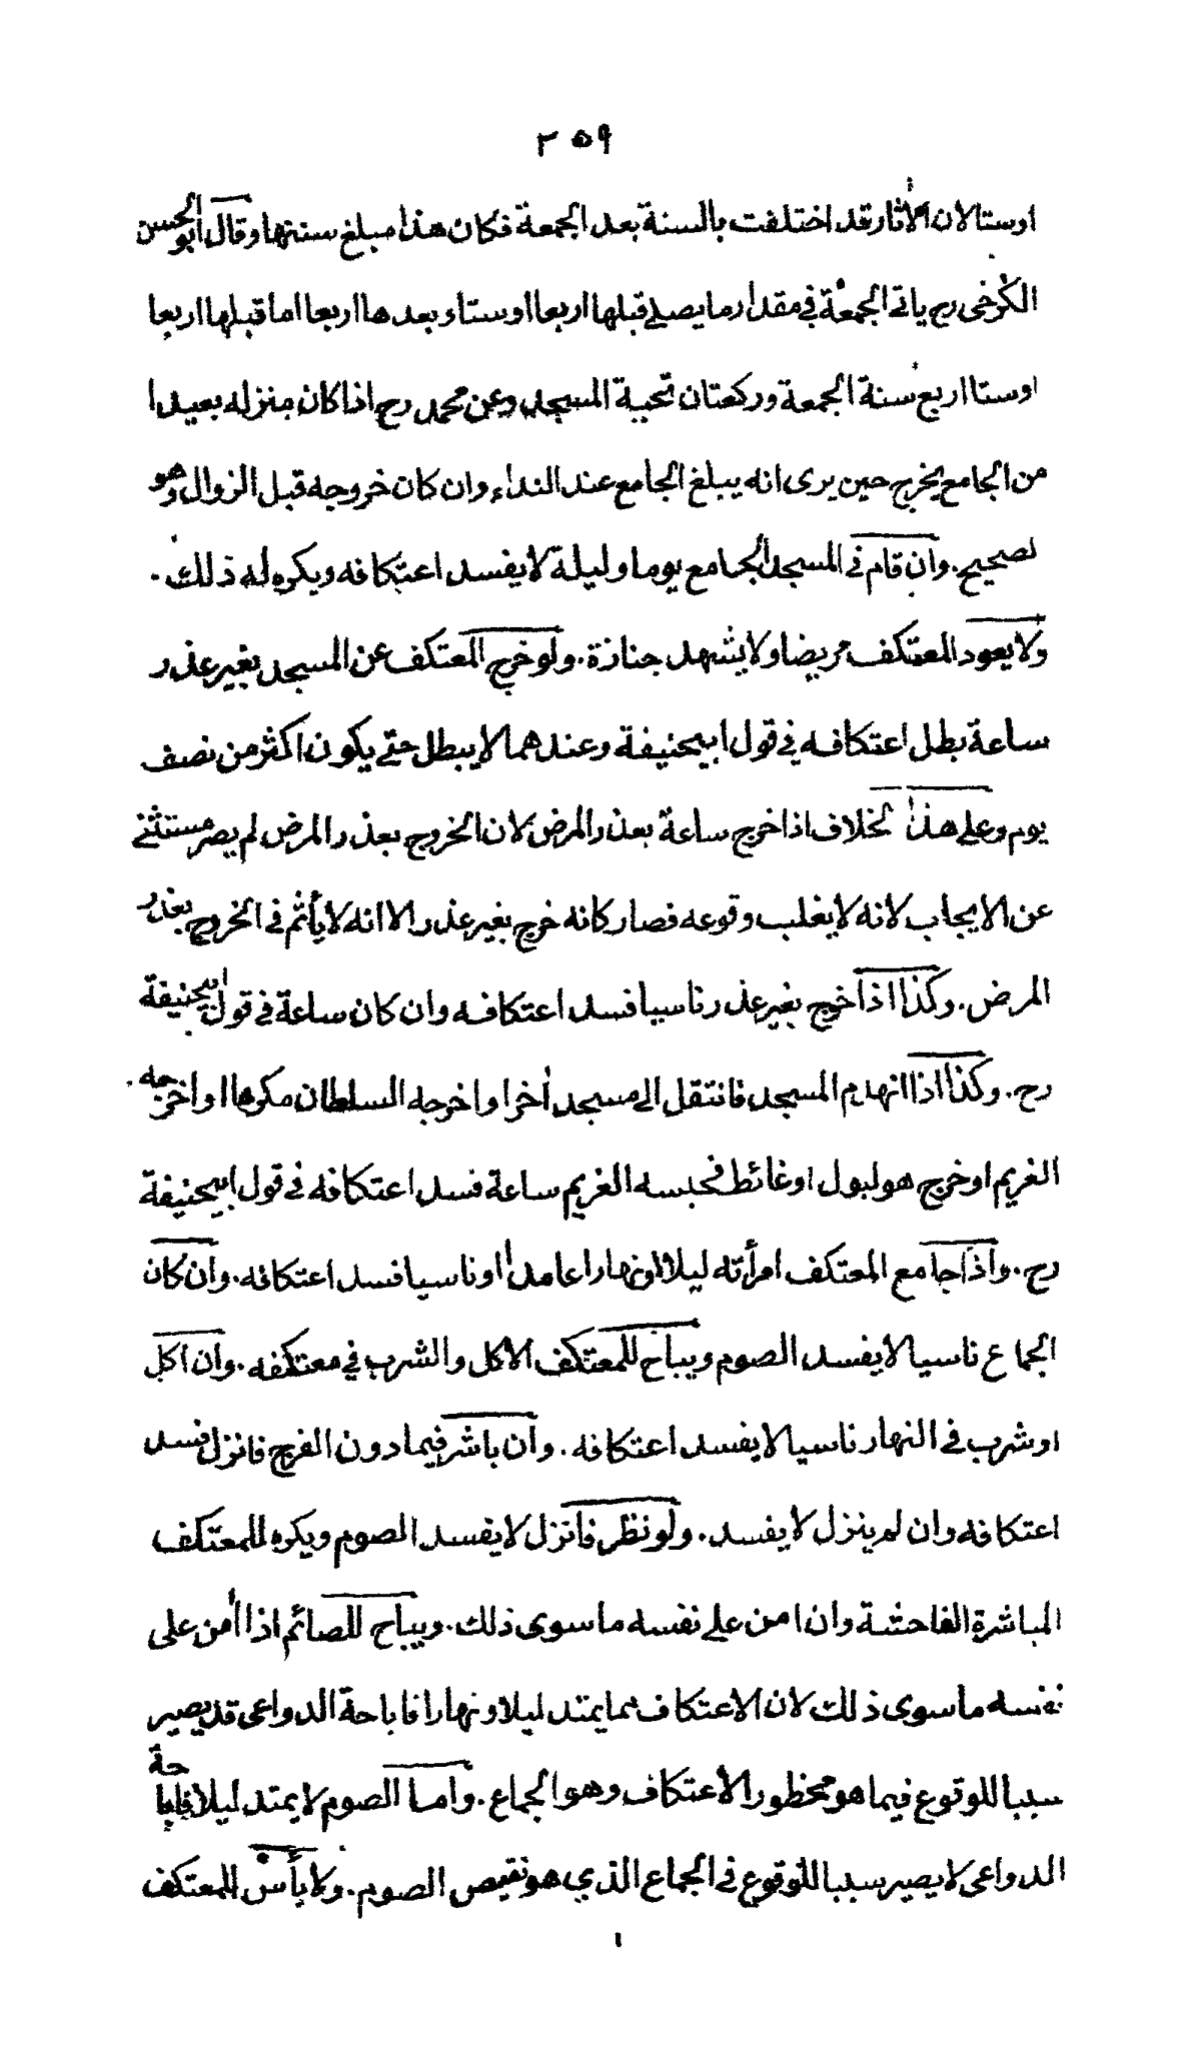 ٢٥٩
اوستا لان الأثار قد اختلفت بالسنة بعد الجمعة فكان هذا مبلغ سنتها وقال ابو الحسن
الكرخى رح ياتى الجمعة في مقدار ما يصلے قبلها اربعا اوستا وبعدها اربعا اما قبلها اربعا
اوستا اربع سنة الجمعة وركعتان تحية المسجد وعن محمد رح اذا كان منزله بعيدا
من الجامع يخرج حين يرى انه يبلغ الجامع عند النداء وان كان خروجه قبل الزوال وهو
لصحيح . وان قام في المسجد الجامع يوما وليلة لا يفسد اعتكافه ويكره له ذلك .
ولا يعود المعتكف مريضا ولا يشهد جنازة . ولو خرج المعتكف عن المسجد بغير عذر
ساعة بطل اعتكافه في قول ابيحنيفة وعندهما لا يبطل حتے يكون اكثر من نصف
يوم وعلے هذا لخلاف اذا خرج ساعة بعذر المرض لان الخروج بعذر المرض لم يصر مستثنے
عن الايجاب لانه لا يغلب وقوعه فصار كانه خرج بغير عذر الا انه لا يأثم في الخروج بعذر
المرض . وكذا اذا خرج بغير عذر ناسيا فسد اعتكافه وان كان ساعة في قول ابيحنيفة
رح . وكذا اذا انهدم المسجد فانتقل الے مسجد أخر او اخرجه السلطان مكرها او اخرجه
الغريم او خرج هو لبول او غائط فحبسه الغريم ساعة فسد اعتكافه في قول ابيحنيفة
رح . واذا جامع المعتكف امرأته ليلا او نهارا عامدا او ناسيا فسد اعتكافه . وان كان
الجماع ناسيا لا يفسد الصوم ويباح للمعتكف الاكل والشرب في معتكفه . وان اكل
او شرب في النهار ناسيا لا يفسد اعتكافه . وان باشر فيما دون الفرج فانزل فسد
اعتكافه وان لم ينزل لا يفسد . ولو نظر فانزل لا يفسد الصوم ويكره للمعتكف
المباشرة الفاحشة وان امن علے نفسه ما سوى ذلك . ويباح للصائم اذا أمن على
نفسه ما سوى ذلك لان الاعتكاف مما يمتد ليلا ونهارا فاباحة الدواعى قد يصير
سببا للوقوع فيما هو محظور الاعتكاف وهو الجماع . واما الصوم لا يمتد ليلا فاباحة
الدواعى لا يصير سببا للوقوع في الجماع الذي هو نقيص الصوم . ولا بأس للمعتكف